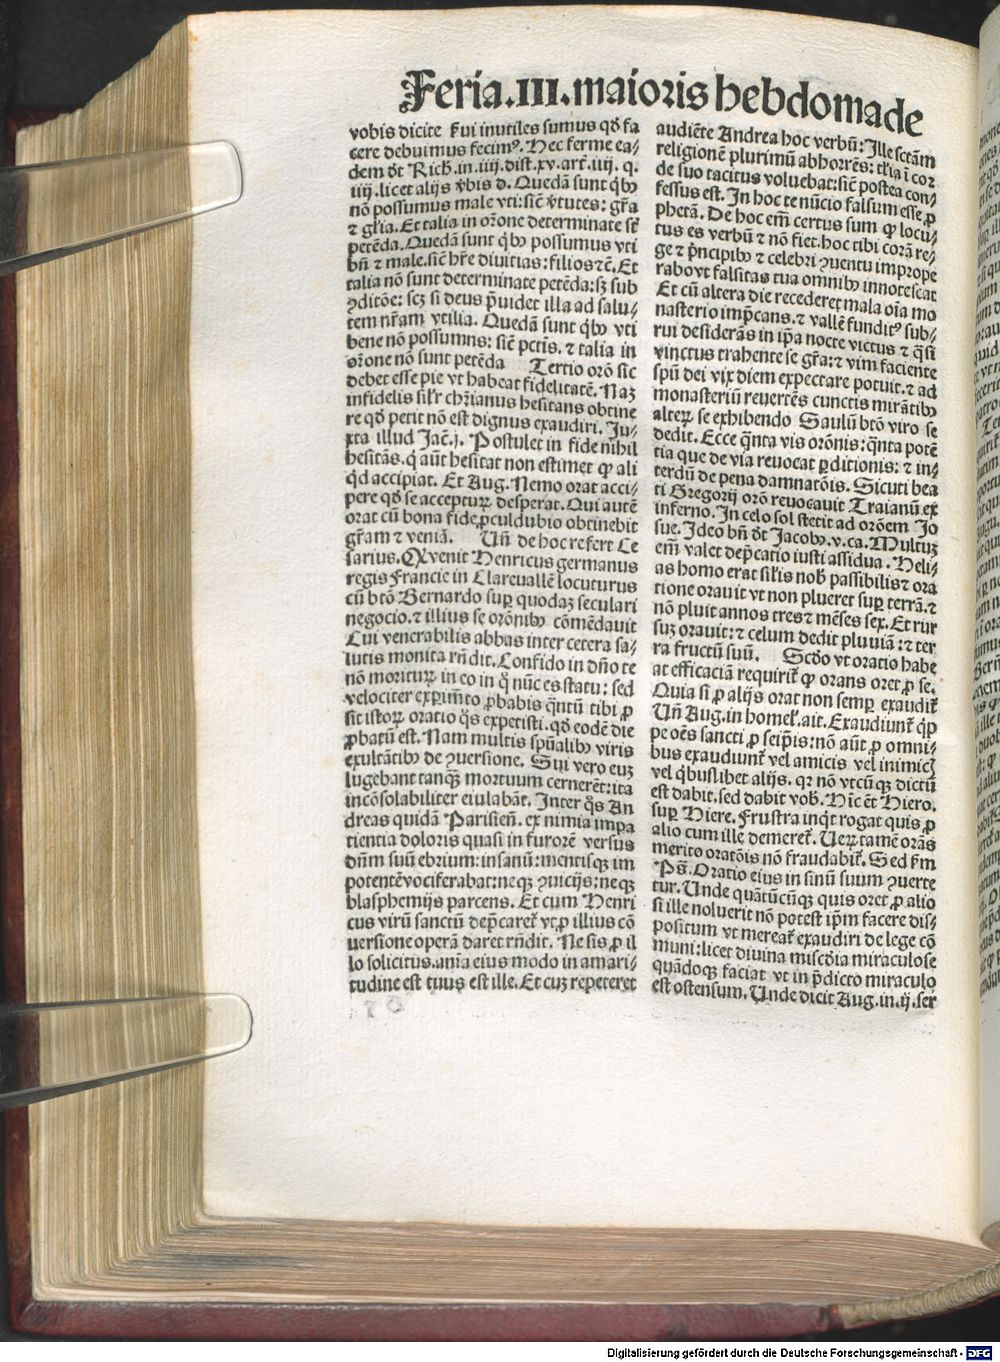 Feria.III.maioris hebdomade
vobis dicite ẜui inutiles sumus qđ fa
cere debuimus fecimꝰ. Hec ferme ea⸗
dem dt̃ Rich̃.in.iiij.dist.xv.art̃.iiij. q.
iiij.licet alijs v̾bis d. Quedã sunt qͥbꝫ
nõ possumus male vti: sic̃ v̾tutes: gr̃a
⁊ gl̃ia. Et talia in or̃one determinate st̃
petẽda. Quedã sunt qͥbꝫ possumus vti
bñ ⁊ male. sic̃ hr̃e diuitias: filios ⁊c̃. Et
talia nõ sunt determinate petẽda: sꝫ sub
ꝯditõe: scꝫ si deus p̃uidet illa ad salu⸗
tem nr̃am vtilia. Quedã sunt qͥbꝫ vti
bene nõ possumus: sic̃ pctĩs. ⁊ talia in
or̃one nõ sunt petẽda Tertio orõ sic
debet esse pie vt habeat fidelitatẽ. Naꝫ
infidelis sil̃r chr̃ianus hesitans obtine
re qđ petit nõ est dignus exaudiri. Ju⸗
xta illud Jac̃.j. Postulet in fide nihil
hesitãs. q̇ aũt hesitat non estimet ꝙ ali
qͥd accipiat. Et Aug. Nemo orat acci⸗
pere qđ se acceptuꝝ desperat. Qui autẽ
orat cũ bona fide ꝓculdubio obtinebit
gr̃am ⁊ veniã. Uñ de hoc refert Ce
sarius. Q̃ venit Henricus germanus
regis Francie in Clareuallẽ locuturus
cũ btõ Bernardo suꝑ quodaꝫ seculari
negocio. ⁊ illius se orõnibꝫ cõmẽdauit
Cui venerabilis abbas inter cetera sa⸗
lutis monita rñdit. Confido in dño te
nõ morituꝝ in eo in q̊ nũc es statu: sed
velociter exꝑim̃to ꝓbabis qͣntũ tibi ꝓ
sit istoꝝ oratio q̊s expetisti. qđ eodẽ die
ꝓbatũ est. Nam multis spũalibꝫ viris
exultãtibꝫ de ꝯuersione. Sui vero euꝫ
lugebant tanqͣꝫ mortuum cernerẽt: ita
incõsolabiliter eiulabãt. Inter q̊s An
dreas quidã Parisieñ. ex nimia impa
tientia doloris quasi in furorẽ versus
dñm suũ ebrium: insanũ: mentisqꝫ im
potentẽ vociferabat: neqꝫ ꝯuicijs: neqꝫ
blasphemijs parcens. Et cum Henri
cus virũ sanctũ dep̃caret̃ vt ꝓ illius cõ
uersione operã daret rñdit. Ne sis ꝓ il
lo solicitus. anĩa eius modo in amari⸗
tudine est tuus est ille. Et cuꝫ repeteret
audiẽte Andrea hoc verbũ: Ille sctãm
religionẽ plurimũ abhorrẽs: tr̃ia ĩ cor
de suo tacitus voluebat: sic̃ postea con⸗
fessus est. In hoc te nũcio falsum esse ꝓ
phetã. De hoc em̃ certus sum ꝙ locu⸗
tus es verbũ ⁊ nõ fiet. hoc tibi corã re⸗
ge ⁊ pͥncipibꝫ ⁊ celebri ꝯuentu imprope
rabo vt falsitas tua omnibꝫ innotescat
Et cũ altera die recederet mala oĩa mo
nasterio imp̃cans. ⁊ vallẽ funditꝰ sub⸗
rui desiderãs in ip̃a nocte victus ⁊ qͣsi
vinctus trahente se gr̃a: ⁊ vim faciente
spũ dei vix diem expectare potuit. ⁊ ad
monasteriũ reuertẽs cunctis mirãtibꝫ
alteꝝ se exhibendo Saulũ btõ viro se
dedit. Ecce qͣnta vis orõnis: qͣnta potẽ
tia que de via reuocat ꝑditionis: ⁊ in⸗
terdũ de pena damnatõis. Sicuti bea
ti Gregorij orõ reuocauit Traianũ ex
inferno. In celo sol stetit ad orõem Jo
sue. Ideo bñ dt̃ Jacobꝫ.v.ca. Multuꝫ
em̃ valet dep̃catio iusti assidua. Heli⸗
as homo erat sil̃is nob̃ passibilis ⁊ ora
tione orauit vt non plueret suꝑ terrã. ⁊
nõ pluit annos tres ⁊ mẽses sex. Et rur
suꝫ orauit: ⁊ celum dedit pluuiã: ⁊ ter
ra fructũ suũ. Scđo vt oratio habe
at efficaciã requirit̃ ꝙ orans oret ꝓ se.
Quia si ꝓ alijs orat non semꝑ exaudit̃
Uñ Aug. in homel̃. ait. Exaudiunt̃ qͥꝑ
pe oẽs sancti ꝓ seip̃is: nõ aũt ꝓ omni⸗
bus exaudiunt̃ vel amicis vel inimicꝭ
vel qͥbuslibet alijs. qꝛ nõ vtcũqꝫ dictũ
est dabit. sed dabit vob̃. Hĩc et̃ Hiero.
suꝑ Hiere. Frustra inqͥt rogat quis ꝓ
alio cum ille demeret̃. Ueꝝtamẽ orãs
merito oratõis nõ fraudabit̃. Sed ẜm
Ps̃. Oratio eius in sinũ suum ꝯuerte
tur. Unde quãtũcũqꝫ quis oret ꝓ alio
si ille noluerit nõ potest ip̃m facere dis⸗
positum vt mereat̃ exaudiri de lege cõ
muni: licet diuina misc̃dia miraculose
quãdoqꝫ faciat vt in p̃dicto miraculo
est ostensum. Unde dicit Aug. in.ij. ser
Digitalisierung gefördert durch die Deutsche Forschungsgemeinschaft - DFG